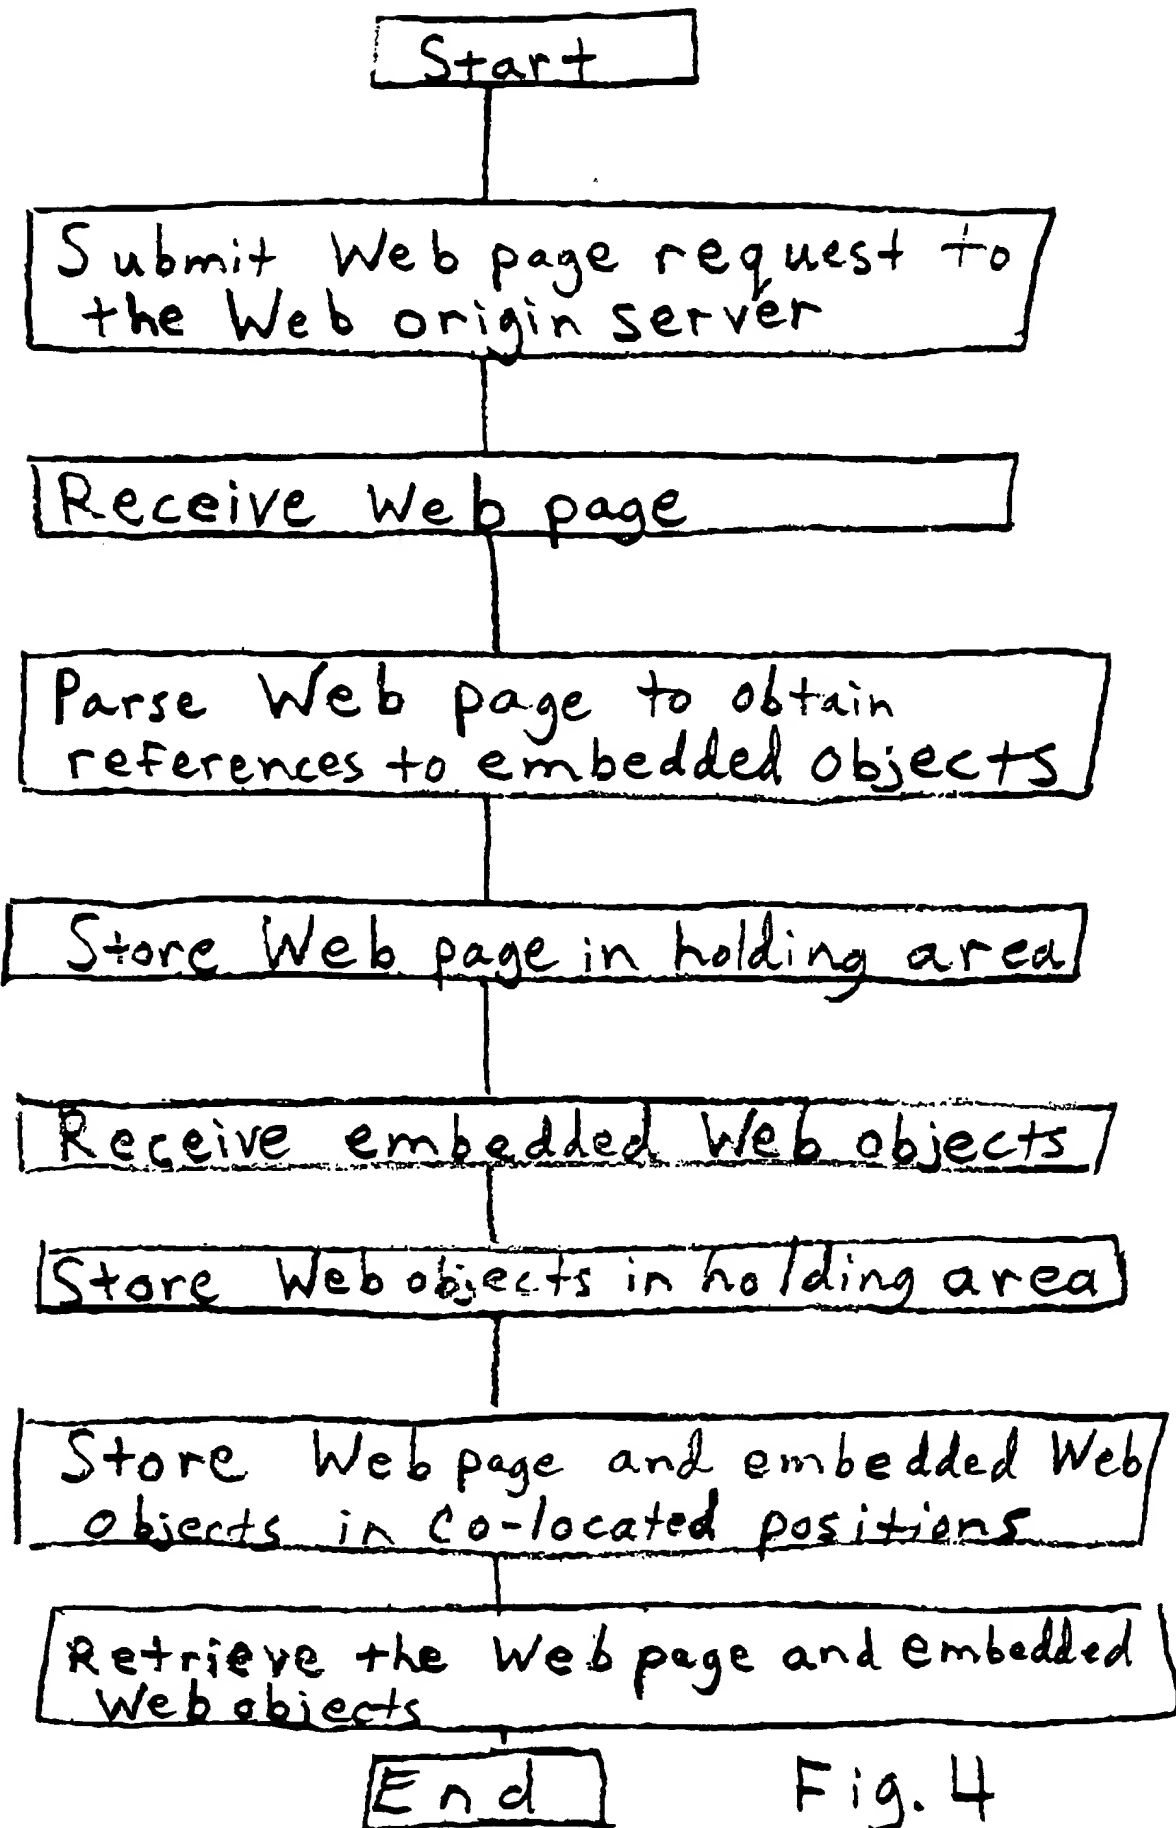 Start
Submit Web page request to
the Web origin server
Receive Web page
Parse Web page to obtain
references to embedded objects
Store Web page in holding area
Receive embedded Web objects
Store Web objects in holding area
Store Web page and embedded Web
objects in co-located positions
Retrieve the Web page and embedded
Web objects
End
Fig. 4